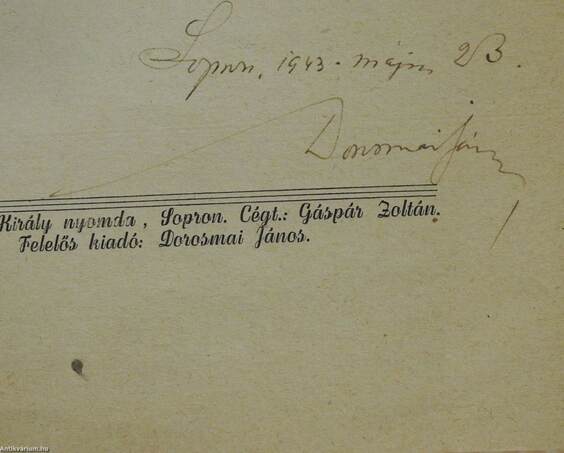 Sopron, 1943. május 23.
Dorosmai János
Király nyomda, Sopron. Cégt.: Gáspár Zoltán.
Felelős kiadó: Dorosmai János.
Antikvarium.hu